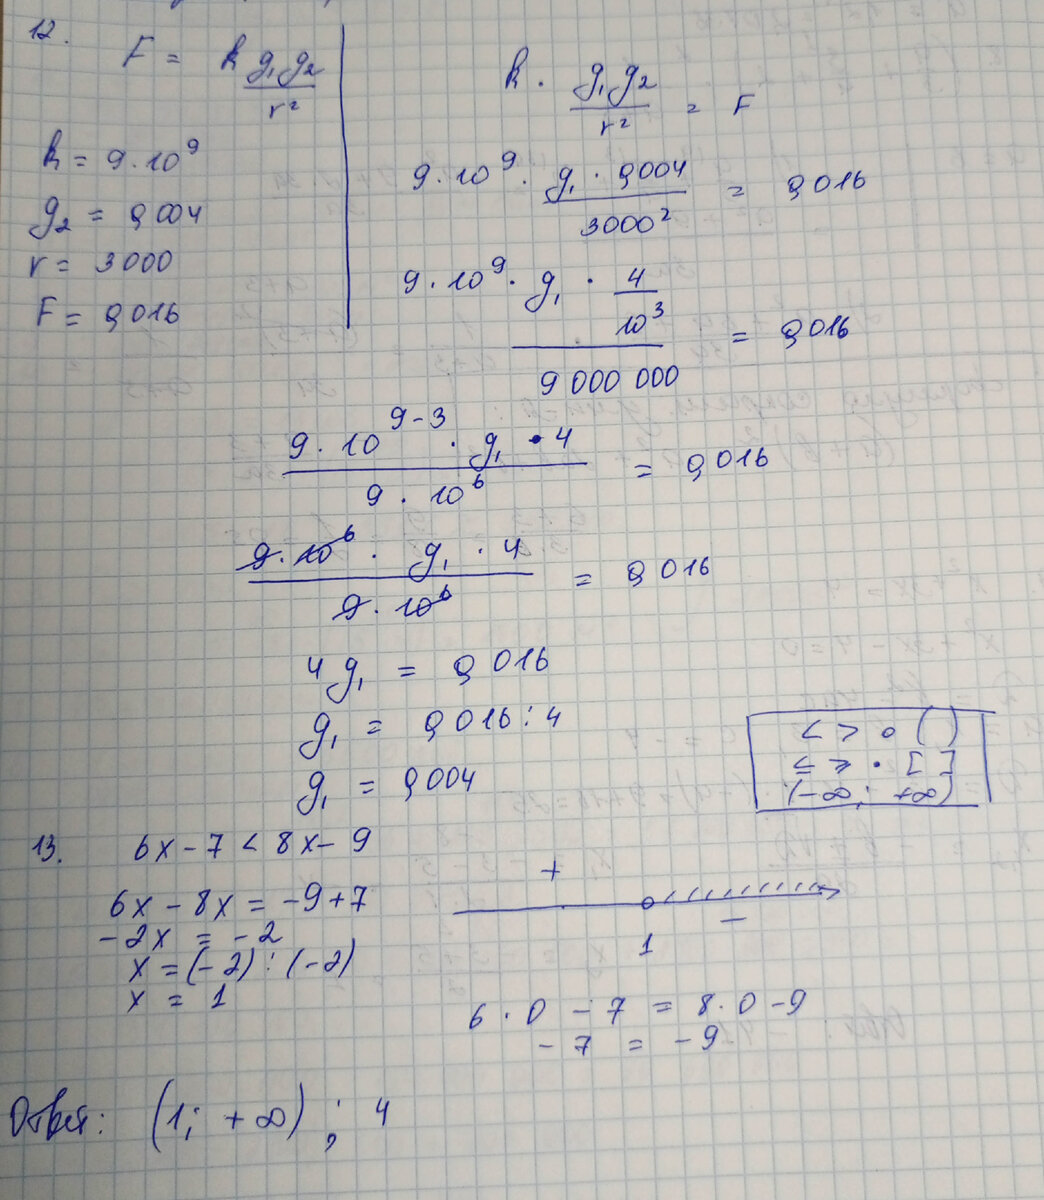 12.
F = k g₁g₂ / r²
k = 9 · 10⁹
g₂ = 0,004
r = 3000
F = 0,016
k · g₁g₂ / r² = F
9 · 10⁹ · g₁ · 0,004 / 3000² = 0,016
9 · 10⁹ · g₁ · 4/10³ / 9 000 000 = 0,016
9 · 10⁹⁻³ · g₁ · 4 / 9 · 10⁶ = 0,016
9 · 10⁶ · g₁ · 4 / 9 · 10⁶ = 0,016
4g₁ = 0,016
g₁ = 0,016 : 4
g₁ = 0,004
< > ∘ ( )
≤ ≥ • [ ]
(-∞; +∞)
13. 6x - 7 < 8x - 9
6x - 8x = -9 + 7
-2x = -2
x = (-2) : (-2)
x = 1
+ −
1
6 · 0 - 7 = 8 · 0 - 9
-7 = -9
Ответ: (1; +∞) ; 4